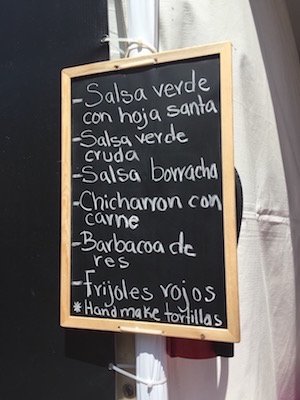 -Salsa verde
con hoja santa
-Salsa verde
cruda
-Salsa borracha
-Chicharron con
carne
-Barbacoa de
res
-Frijoles rojos
*Handmake tortillas